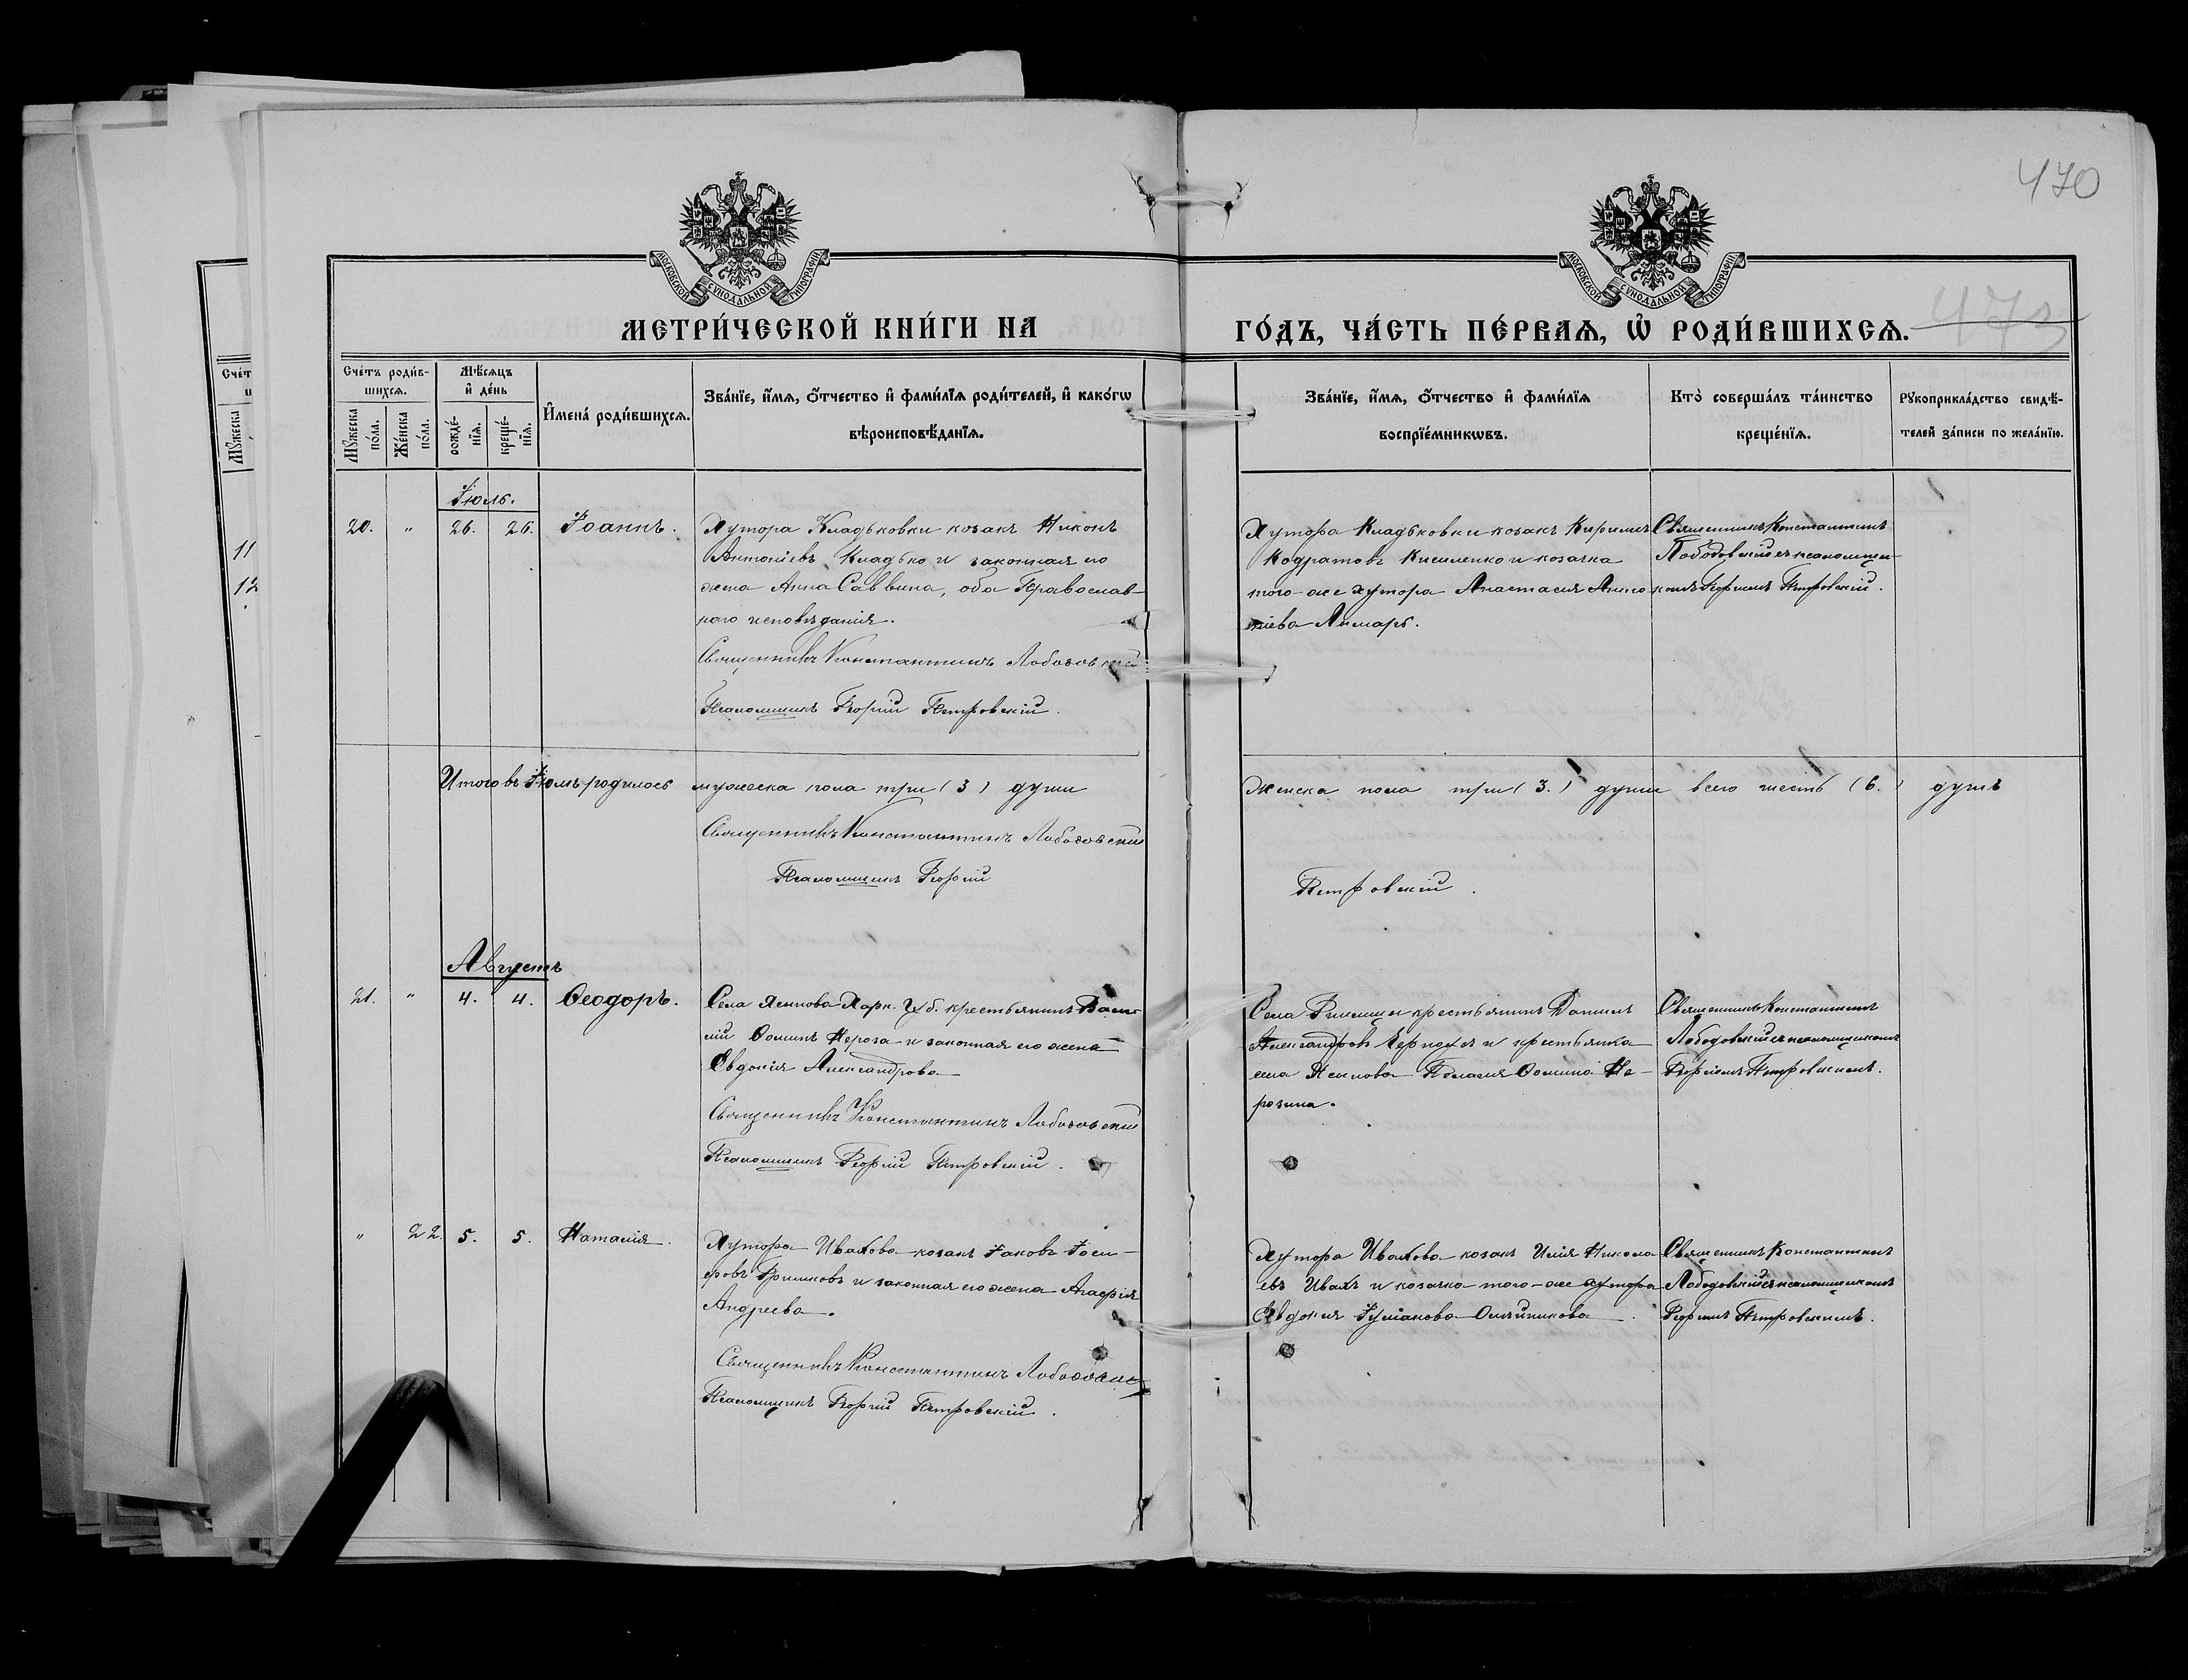 470
МОСКОВСКОЙ СѴНОДАЛЬНОЙ ТИПОГРАФІИ
МОСКОВСКОЙ СѴНОДАЛЬНОЙ ТИПОГРАФІИ
473
МЕТРИ́ЧЕСКОЙ КНИ́ГИ НА
ГО́ДЪ, ЧА́СТЬ ПЕ́РВАѦ, Ѡ҆ РОДИ́ВШИХСѦ.
Сче́тъ роди́в-
шихсѧ.
Мꙋжеска по́ла.
Же́нска по́ла.
Мѣ́сѧцъ
и҆ де́нь
рожде́-
нїѧ.
креще́-
нїѧ.
И҆мена̀ роди́вшихсѧ.
Зва́нїе, и҆́мѧ, ѻ҆́тчество и҆ фами́лїѧ роди́телей, и҆ како́гѡ
вѣроисповѣ́данїѧ.
Зва́нїе, и҆́мѧ, ѻ҆́тчество и҆ фами́лїѧ
воспрїе́мникѡвъ.
Кто̀ соверша́лъ та́инство
креще́нїѧ.
Рꙋкоприкла́дство свидѣ́-
телей за́писи по жела́нїю.
11
12
Іюль.
20. " 26. 26. Іоаннъ.
Хутора Кладьковки козакъ Никонъ
Антоніевъ Кладько и законная его
жена Анна Саввина, оба Православ-
наго исповѣданія.
Священникъ Константинъ Лободовскій
Псаломщикъ Георгій Петровскій.
Хутора Кладьковки козакъ Кирилъ
Кодратовъ Кисиленко и козачка
того-же хутора Анастасія Анто
ніева Лимарь.
Священникъ Константинъ
Лободовскій съ псаломщи-
комъ Георгіемъ Петровскій.
Итого въ Іюлѣ родилось мужеска пола три (3) души
женска пола три (3.) души всего шесть (6.) душъ
Священникъ Константинъ Лободовскій
Псаломщикъ Георгій
Петровскій.
Августъ
21. " 4. 4. Ѳеодоръ.
Села Ясенова Харк. Губ. крестьянинъ Васи-
лій Ѳоминъ Нероза и законная его жена
Евдокія Александрова
Священникъ Константинъ Лободовскій
Псаломщикъ Георгій Петровскій.
Села крестьянинъ Даниилъ
Александровъ и крестьянка
села Ясенова Пелагія Ѳомина Не-
розина.
Священникъ Константинъ
Лободовскій съ псаломщикомъ
Георгіемъ Петровскимъ.
" 22. 5. 5. Наталія.
Хутора Ивахова козакъ Іаковъ Іоси-
фовъ и законная его жена Агафія
Андреева.
Священникъ Константинъ Лободовскій
Псаломщикъ Георгій Петровскій.
Хутора Ивахова козакъ Илія Никола
евъ Ивахъ и козачка того-же хутора
Евдокія Іуліанова
Священникъ Константинъ
Лободовскій съ псаломщикомъ
Георгіемъ Петровскимъ.